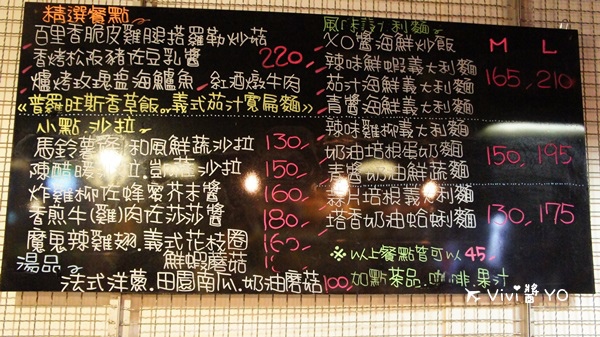 精選餐點
百里香脆皮雞腿搭羅勒炒菇
香烤松板豬佐豆乳醬 220
爐烤玫瑰鹽海鱸魚.紅酒燉牛肉
《普羅旺斯香草飯。義式茄汁寬扁麵》
小點.沙拉
馬鈴薯 和風鮮蔬沙拉 130
陳醋暖 拉.凱 沙拉 150
炸雞柳佐蜂蜜芥末醬 160
香煎牛(雞)肉佐莎莎醬 180
魔鬼辣雞翅.義式花枝圈 160
湯品 鮮蝦蘑菇
法式洋蔥.田園南瓜.奶油蘑菇 100
風味義利麵
XO醬海鮮炒飯 M L
辣味鮮蝦義大利麵
茄汁海鮮義大利麵 165, 210
青醬海鮮義大利麵
辣味雞柳義大利麵
奶油培根蛋奶麵 150, 195
青醬奶油鮮蔬麵
蒜片培根義大利麵
塔香奶油蛤蜊麵 130, 175
※以上餐點皆可以45
加點茶品.咖啡.果汁
Vivi醬YO